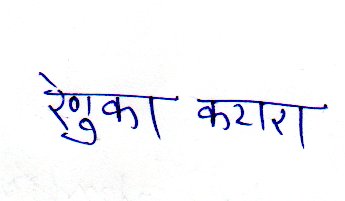 रेणुका कटारा